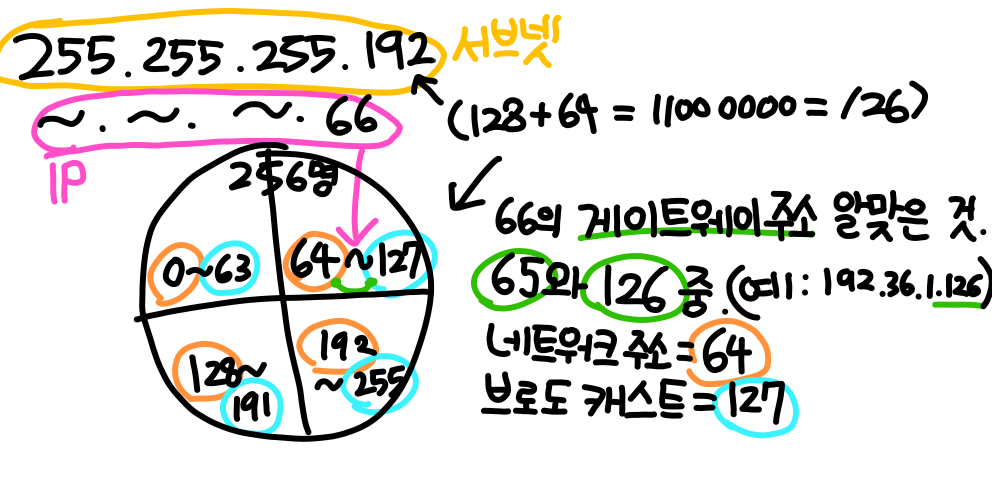 255.255.255.192 서브넷
~. ~. ~. 66
(128+64 = 1100 0000 = /26)
IP
256명
0~63
64~127
128~
191
192
~255
66의 게이트웨이 주소 알맞은 것.
65와 126 중. (예: 192.36.1.126)
네트워크 주소 = 64
브로도 캐스트 = 127